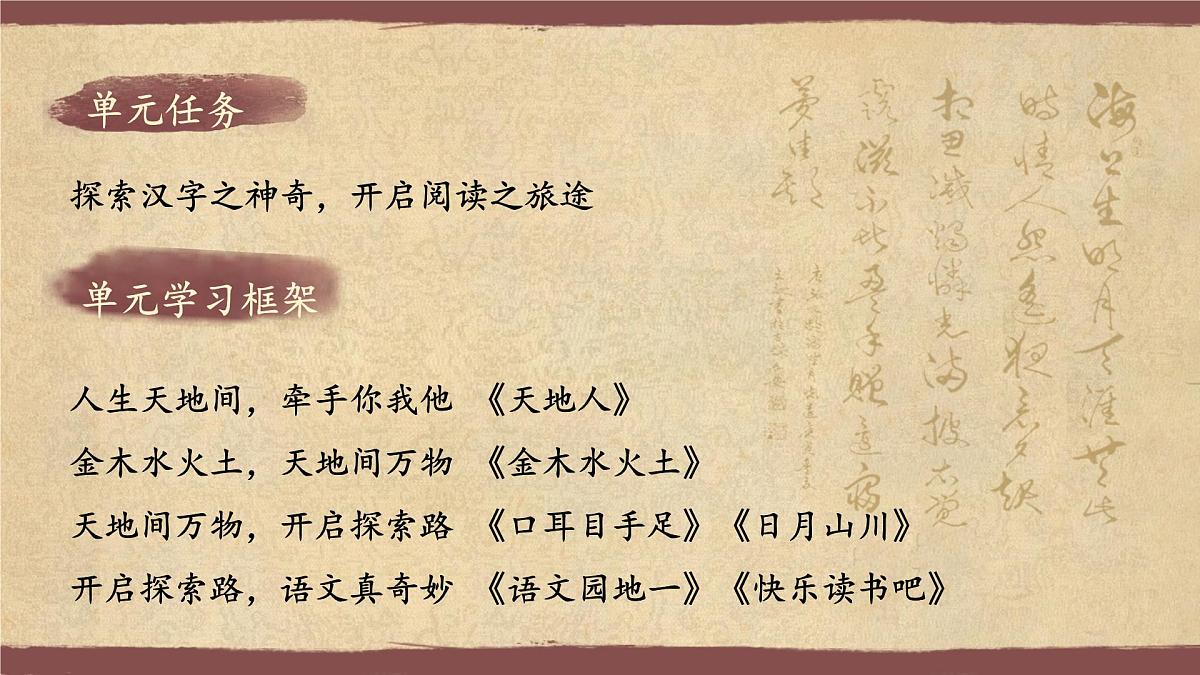 单元任务
探索汉字之神奇，开启阅读之旅途
单元学习框架
人生天地间，牵手你我他 《天地人》
金木水火土，天地间万物 《金木水火土》
天地间万物，开启探索路 《口耳目手足》《日月山川》
开启探索路，语文真奇妙 《语文园地一》《快乐读书吧》
海上生明月天涯共此
时情人怨遥夜竟夕起
相思灭烛怜光满披衣觉
露滋不堪盈手赠还寝
梦佳期